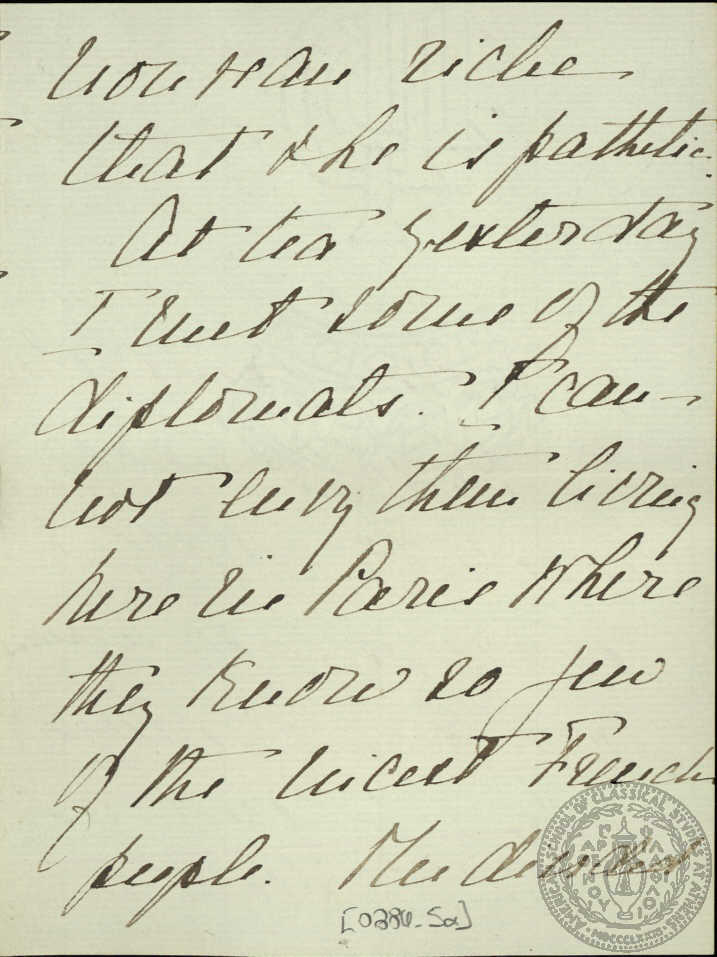 nouveau riche
that she is pathetic.
At tea yesterday
I met some of the
diplomats. I can-
not envy them living
here in Paris where
they know so few
of the nicest French
people. The
[0286-5a]
AMERICAN SCHOOL OF CLASSICAL STUDIES AT ATHENS
MDCCCLXXXI